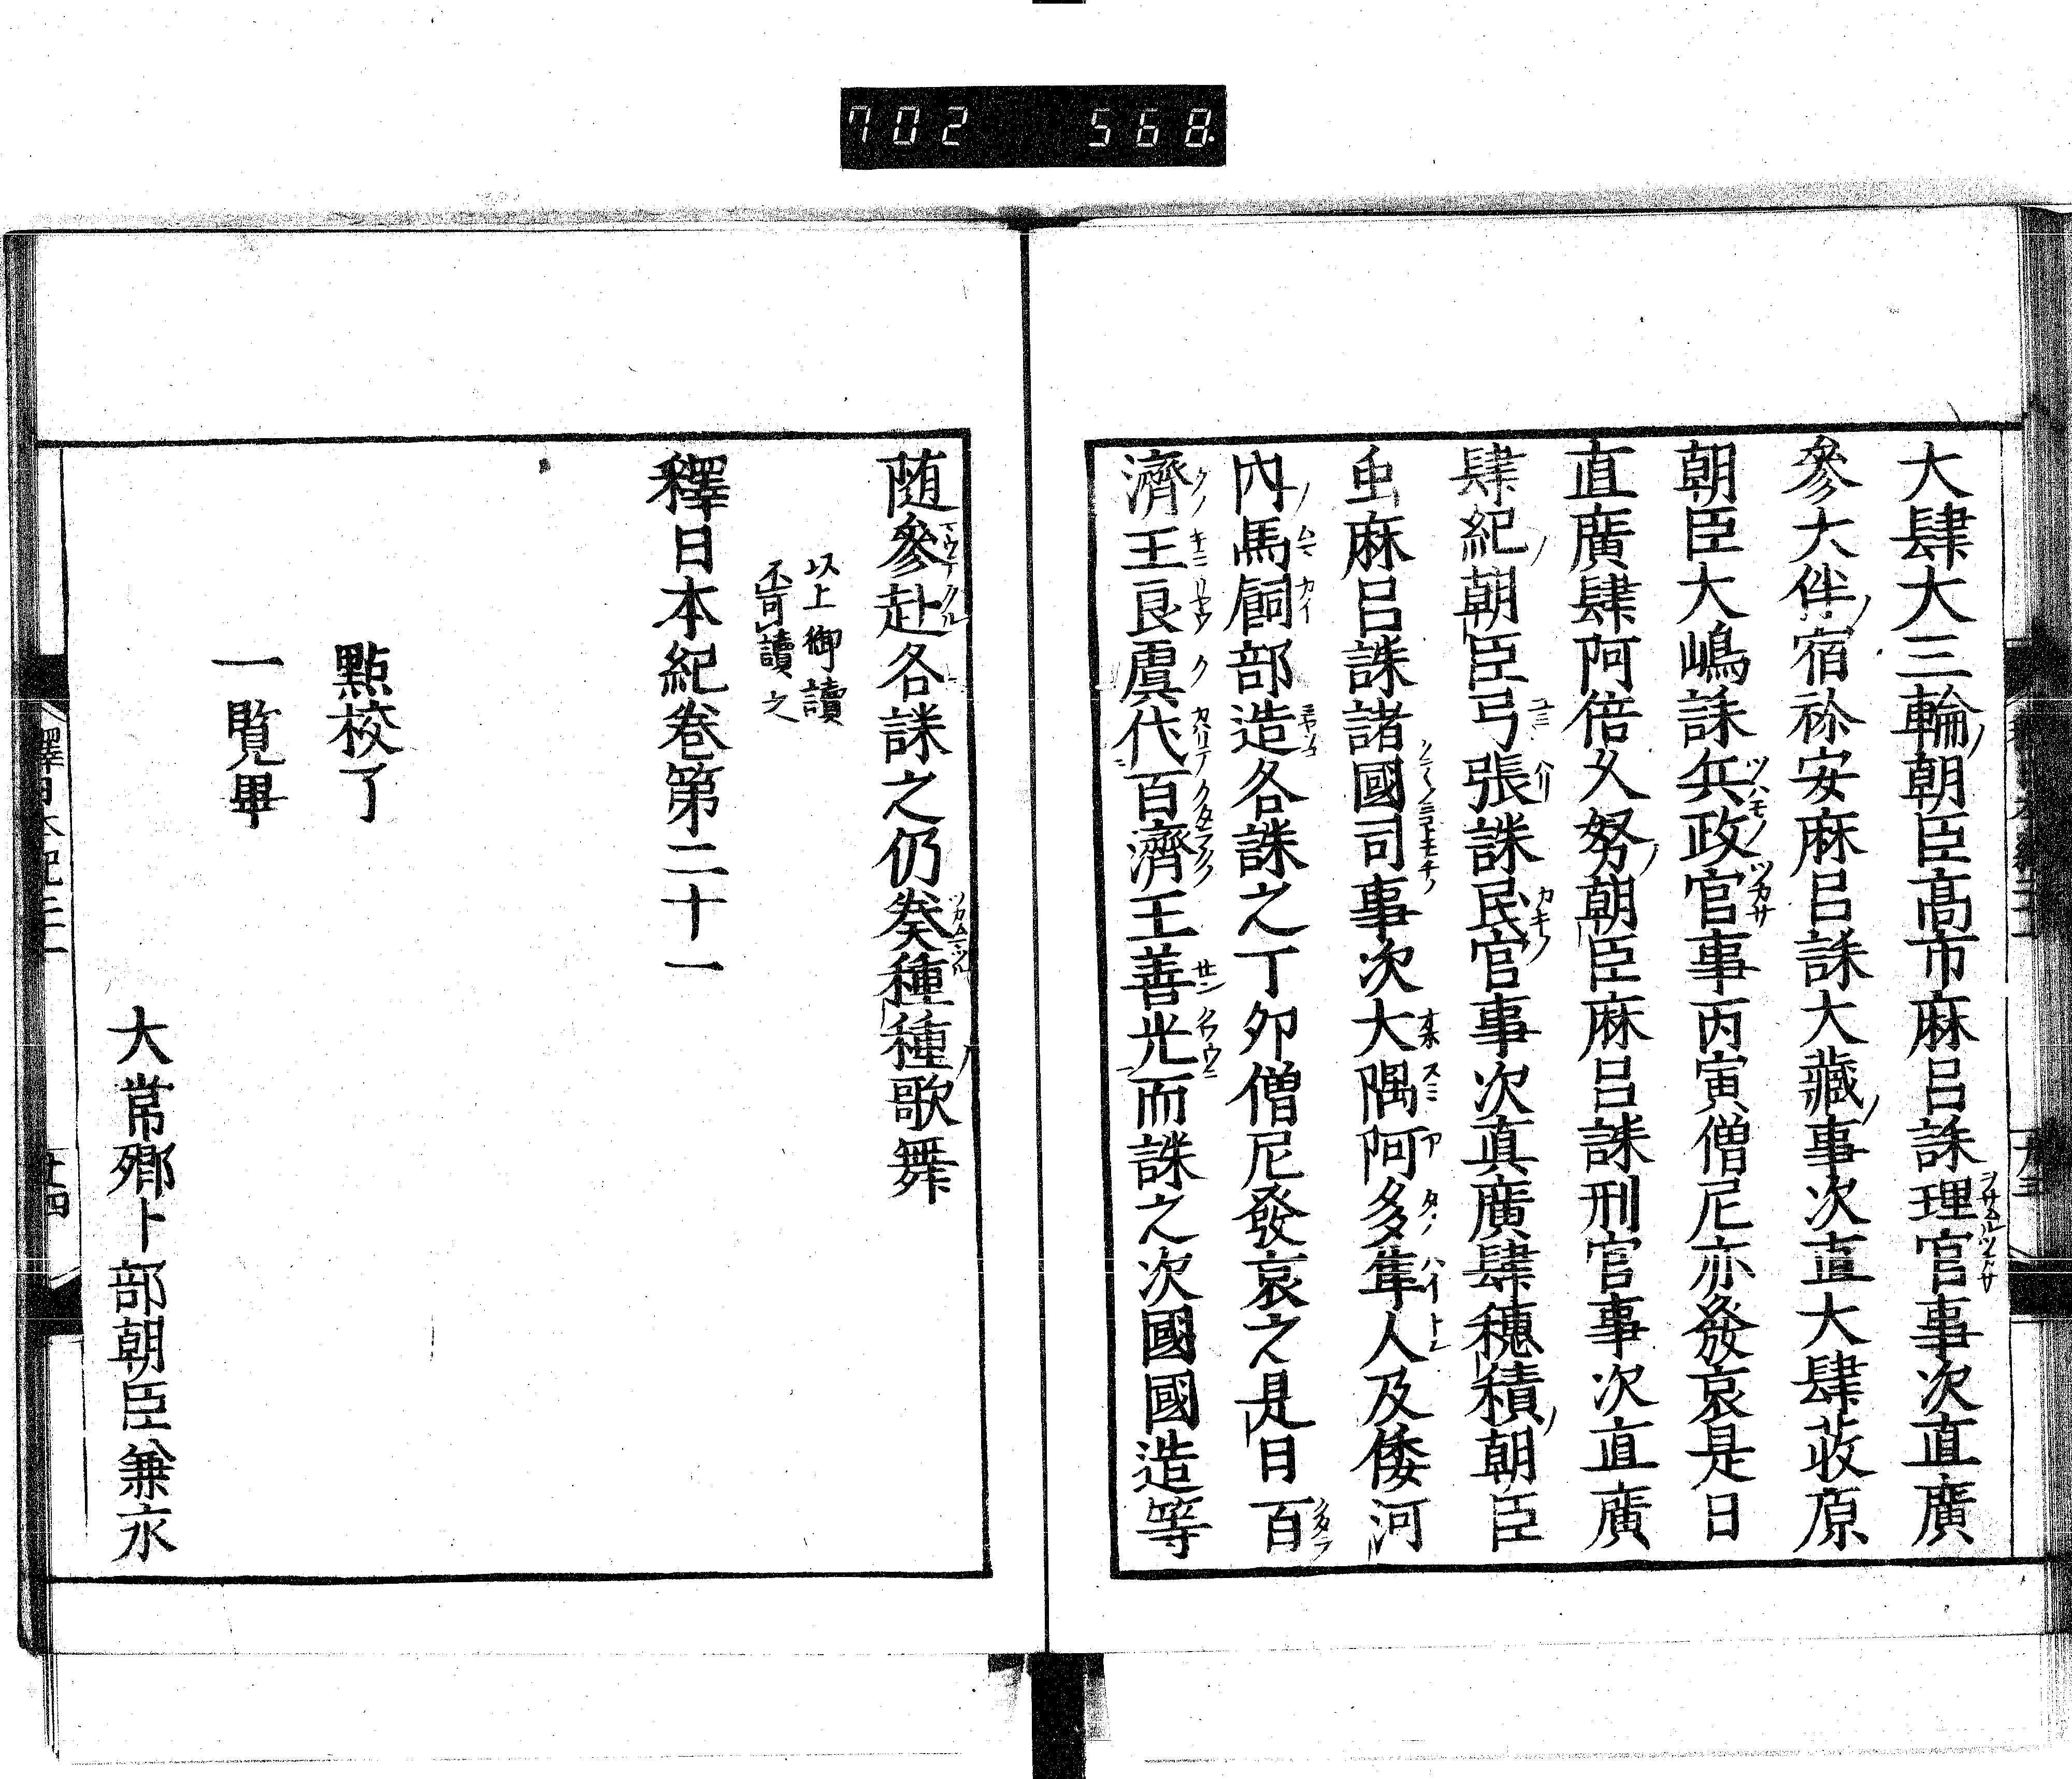 702 568
大肆大三輪朝臣髙市麻呂誄理官事次直廣
參大伴宿祢安麻呂誄大藏事次直大肆藤原
朝臣大嶋誄兵政官事丙寅僧尼亦發哀是日
直廣肆阿倍久努朝臣麻呂誄刑官事次直廣
肆紀朝臣弓張誄民官事次直廣肆穗積朝臣
虫麻呂誄諸國司事次大隅阿多隼人及倭河
內馬飼部造各誄之丁卯僧尼發哀之是日百
濟王良虞代百濟王善光而誄之次國國造等
随參赴各誄之仍發種種歌舞
以上御讀
不可讀之
釋日本紀卷第二十一
點校了
一覧畢
大常卿卜部朝臣兼永
釋日本紀二十一
廿四